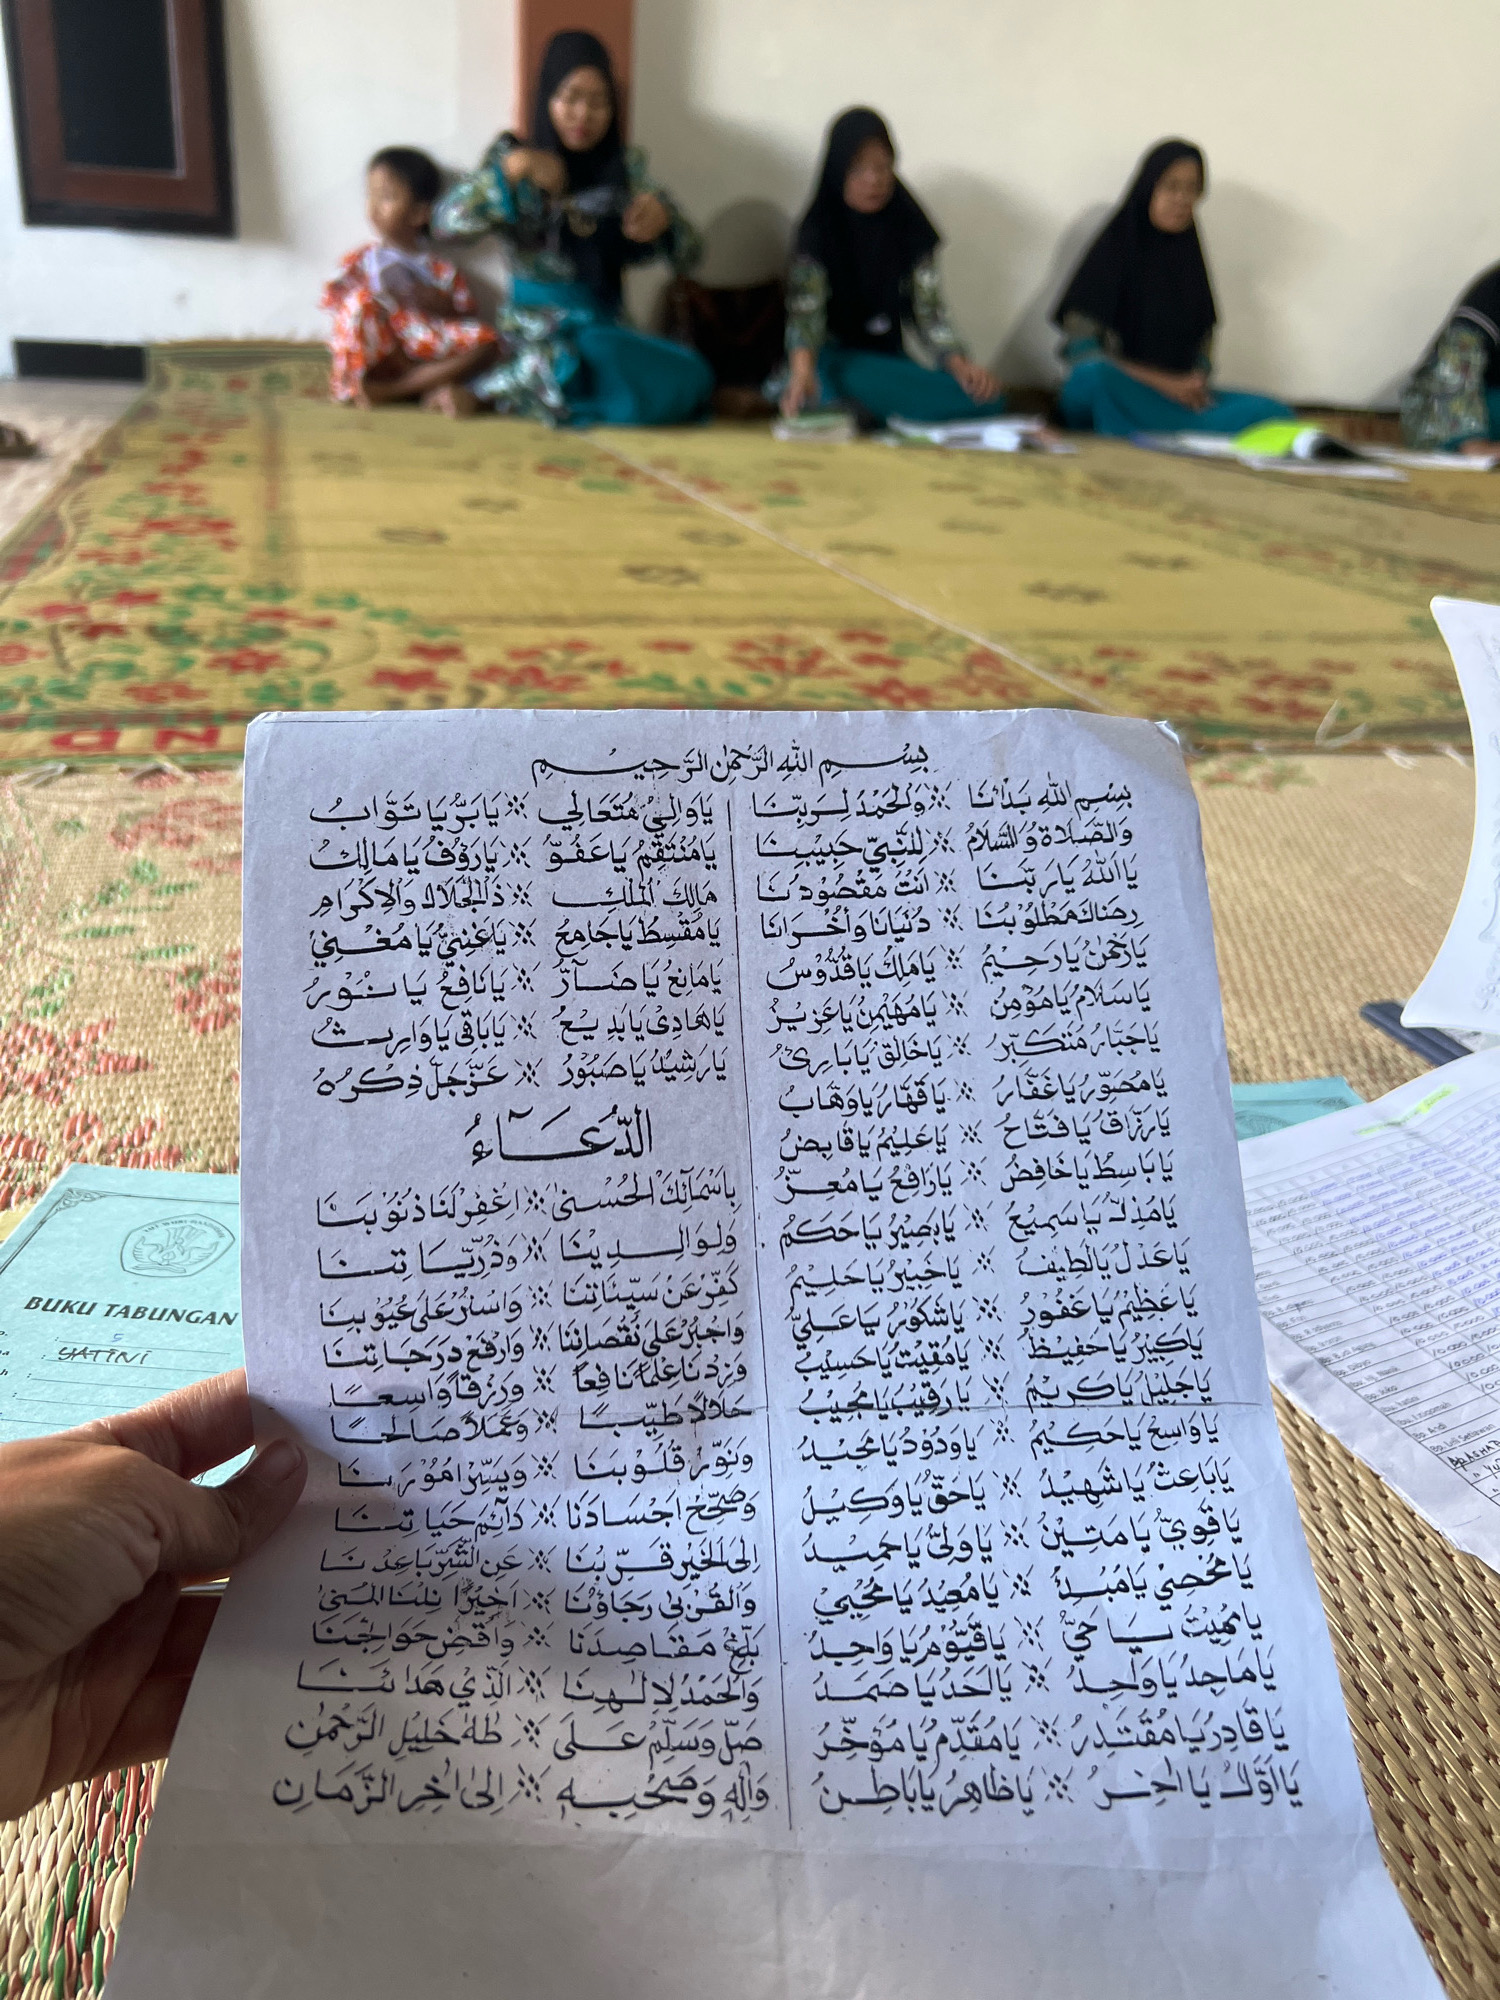 بِسْمِ اللهِ الرَّحْمٰنِ الرَّحِيْمِ
بِسْمِ اللهِ بَدَأْنَا ※ وَالْحَمْدُ لِرَبِّنَا
وَالصَّلَاةُ وَالسَّلَامُ ※ لِلنَّبِيِّ حَبِيْبِنَا
يَا اَللهُ يَارَبَّنَا ※ اَنْتَ مَقْصُوْدُنَا
رِضَاكَ مَطْلُوْبُنَا ※ دُنْيَانَا وَأُخْرَانَا
يَارَحْمٰنُ يَارَحِيْمُ ※ يَامَلِكُ يَاقُدُّوْسُ
يَاسَلَامُ يَامُؤْمِنُ ※ يَامُهَيْمِنُ يَاعَزِيْزُ
يَاجَبَّارُ مُتَكَبِّرُ ※ يَاخَالِقُ يَابَارِئُ
يَامُصَوِّرُ يَاغَفَّارُ ※ يَاقَهَّارُ يَاوَهَّابُ
يَارَزَّاقُ يَافَتَّاحُ ※ يَاعَلِيْمُ يَاقَابِضُ
يَابَاسِطُ يَاخَافِضُ ※ يَارَافِعُ يَامُعِزُّ
يَامُذِلُّ يَاسَمِيْعُ ※ يَابَصِيْرُ يَاحَكَمُ
يَاعَدْلُ يَالَطِيْفُ ※ يَاخَبِيْرُ يَاحَلِيْمُ
يَاعَظِيْمُ يَاغَفُوْرُ ※ يَاشَكُوْرُ يَاعَلِيُّ
يَاكَبِيْرُ يَاحَفِيْظُ ※ يَامُقِيْتُ يَاحَسِيْبُ
يَاجَلِيْلُ يَاكَرِيْمُ ※ يَارَقِيْبُ يَامُجِيْبُ
يَاوَاسِعُ يَاحَكِيْمُ ※ يَاوَدُوْدُ يَامَجِيْدُ
يَابَاعِثُ يَاشَهِيْدُ ※ يَاحَقُّ يَاوَكِيْلُ
يَاقَوِيُّ يَامَتِيْنُ ※ يَاوَلِيُّ يَاحَمِيْدُ
يَامُحْصِيْ يَامُبْدِئُ ※ يَامُعِيْدُ يَامُحْيِيْ
يَامُمِيْتُ يَاحَيُّ ※ يَاقَيُّوْمُ يَاوَاجِدُ
يَامَاجِدُ يَاوَاحِدُ ※ يَااَحَدُ يَاصَمَدُ
يَاقَادِرُ يَامُقْتَدِرُ ※ يَامُقَدِّمُ يَامُؤَخِّرُ
يَااَوَّلُ يَااٰخِرُ ※ يَاظَاهِرُ يَابَاطِنُ
يَاوَالِيْ مُتَعَالِي ※ يَابَرُّ يَاتَوَّابُ
يَامُنْتَقِمُ يَاعَفُوُّ ※ يَارَؤُفُ يَامَالِكُ
مَالِكَ الْمُلْكِ ※ ذَاالْجَلَالِ وَالْاِكْرَامِ
يَامُقْسِطُ يَاجَامِعُ ※ يَاغَنِيُّ يَامُغْنِيْ
يَامَانِعُ يَاضَآرُّ ※ يَانَافِعُ يَانُوْرُ
يَاهَادِيْ يَابَدِيْعُ ※ يَابَاقِى يَاوَارِثُ
يَارَشِيْدُ يَاصَبُوْرُ ※ عَزَّجَلَّ ذِكْرُهُ
الدُّعَآءُ
بِاَسْمَآئِكَ الْحُسْنٰى ※ اِغْفِرْلَنَا ذُنُوْبَنَا
وَلِوَالِدِيْنَا ※ وَذُرِّيَّاتِنَا
كَفِّرْ عَنْ سَيِّئَاتِنَا ※ وَاسْتُرْ عَلَى عُيُوْبِنَا
وَاجْبُرْ عَلَى نُقْصَانِنَا ※ وَارْفَعْ دَرَجَاتِنَا
وَزِدْنَا عِلْمًا نَافِعًا ※ وَرِزْقًا وَاسِعًا
حَلَالًا طَيِّبًا ※ وَعَمَلًا صَالِحًا
وَنَوِّرْ قُلُوْبَنَا ※ وَيَسِّرْ اُمُوْرَنَا
وَصَحِّحْ اَجْسَادَنَا ※ دَآئِمَ حَيَاتِنَا
اِلَى الْخَيْرِ قَرِّبْنَا ※ عَنِ الشَّرِّ بَاعِدْنَا
وَالْقُرْبٰى رَجَاؤُنَا ※ اَخِيْرًا نِلْنَا الْمُنٰى
بَلِّغْ مَقَاصِدَنَا ※ وَاقْضِ حَوَآئِجَنَا
وَالْحَمْدُ لِاِلٰهِنَا ※ الَّذِيْ هَدَانَا
صَلِّ وَسَلِّمْ عَلَى ※ طٰهٰ خَلِيْلِ الرَّحْمٰنِ
وَاٰلِهِ وَصَحْبِهِ ※ اِلٰى اٰخِرِ الزَّمَانِ
BUKU TABUNGAN
YATINI